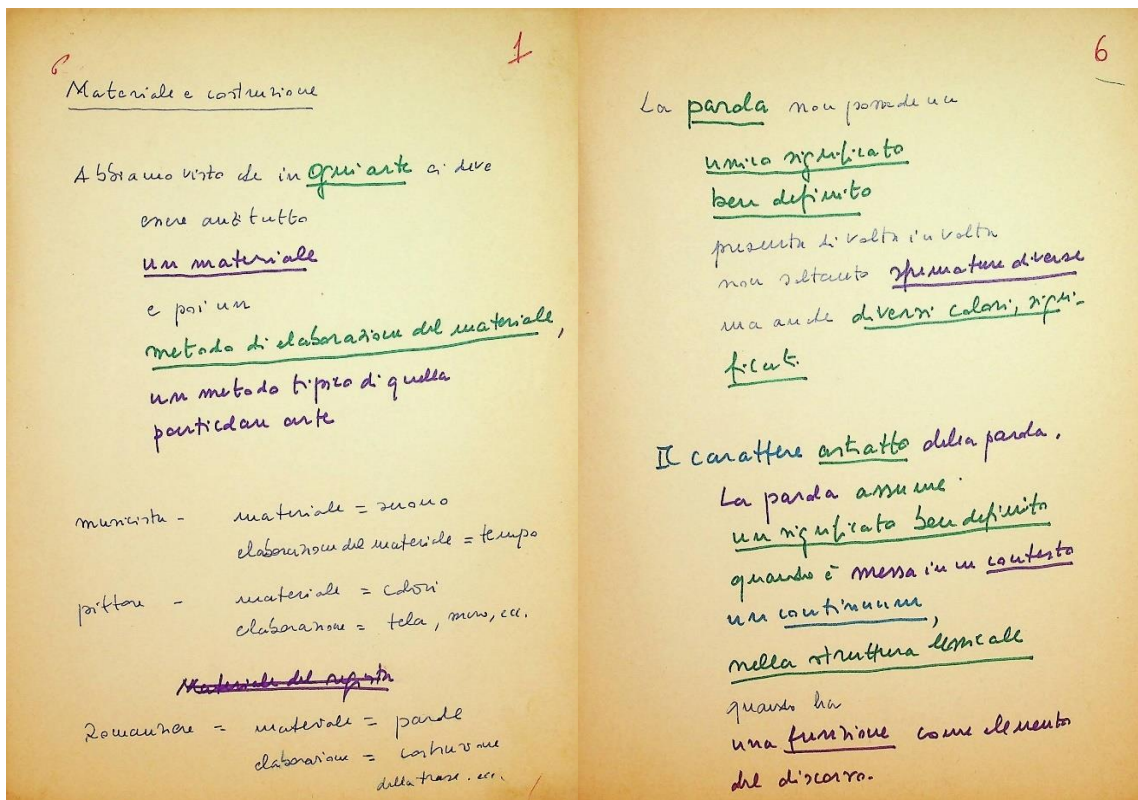 6
1
Materiale e costruzione
Abbiamo visto che in ogni arte ci deve
essere anzitutto
un materiale
e poi un
metodo di elaborazione del materiale,
un metodo tipico di quella
particolare arte
musicista - materiale = suono
elaborazione del materiale = tempo
pittore - materiale = colori
elaborazione = tela, muro, ecc.
Materiale del regista
Romanziere = materiale = parole
elaborazione = costruzione
della frase. ecc.
6
La parola non possiede un
unico significato
ben definito
presenta di volta in volta
non soltanto sfumature diverse
ma anche diversi colori, signi-
ficati.
Il carattere astratto della parola.
La parola assume
un significato ben definito
quando è messa in un contesto
un continuum,
nella struttura lessicale
quando ha
una funzione come elemento
del discorso.